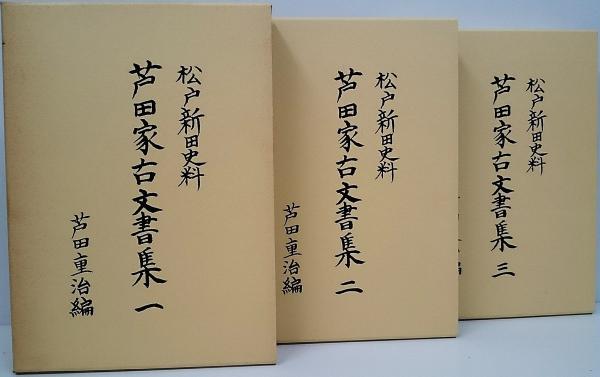 松戸新田史料
芦田家古文書集 一
芦田重治編
松戸新田史料
芦田家古文書集 二
芦田重治編
松戸新田史料
芦田家古文書集 三
編